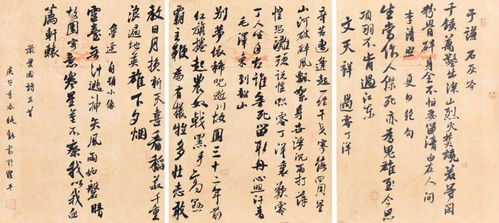 于謙 石灰吟
千錘萬擊出深山 烈火焚燒若等閒
粉骨碎身全不怕 要留清白在人間
李清照 夏日絕句
生當作人傑 死亦為鬼雄 至今思
項羽 不肯過江東
文天祥 過零丁洋
辛苦遭逢起一經 干戈寥落四周星
山河破碎風飄絮 身世浮沉雨打萍
惶恐灘頭說惶恐 零丁洋裏嘆零
丁 人生自古誰無死 留取丹心照汗青
毛澤東 到韶山
別夢依稀咒逝川 故園三十二年前
紅旗捲起農奴戟 黑手高懸
霸主鞭 為有犧牲多壯志 敢
教日月換新天 喜看稻菽千重
浪 遍地英雄下夕煙
魯迅 自題小像
靈臺無計逃神矢 風雨如磐暗
故園 寄意寒星荃不察 我以我血
薦軒轅
錄愛國詩五首